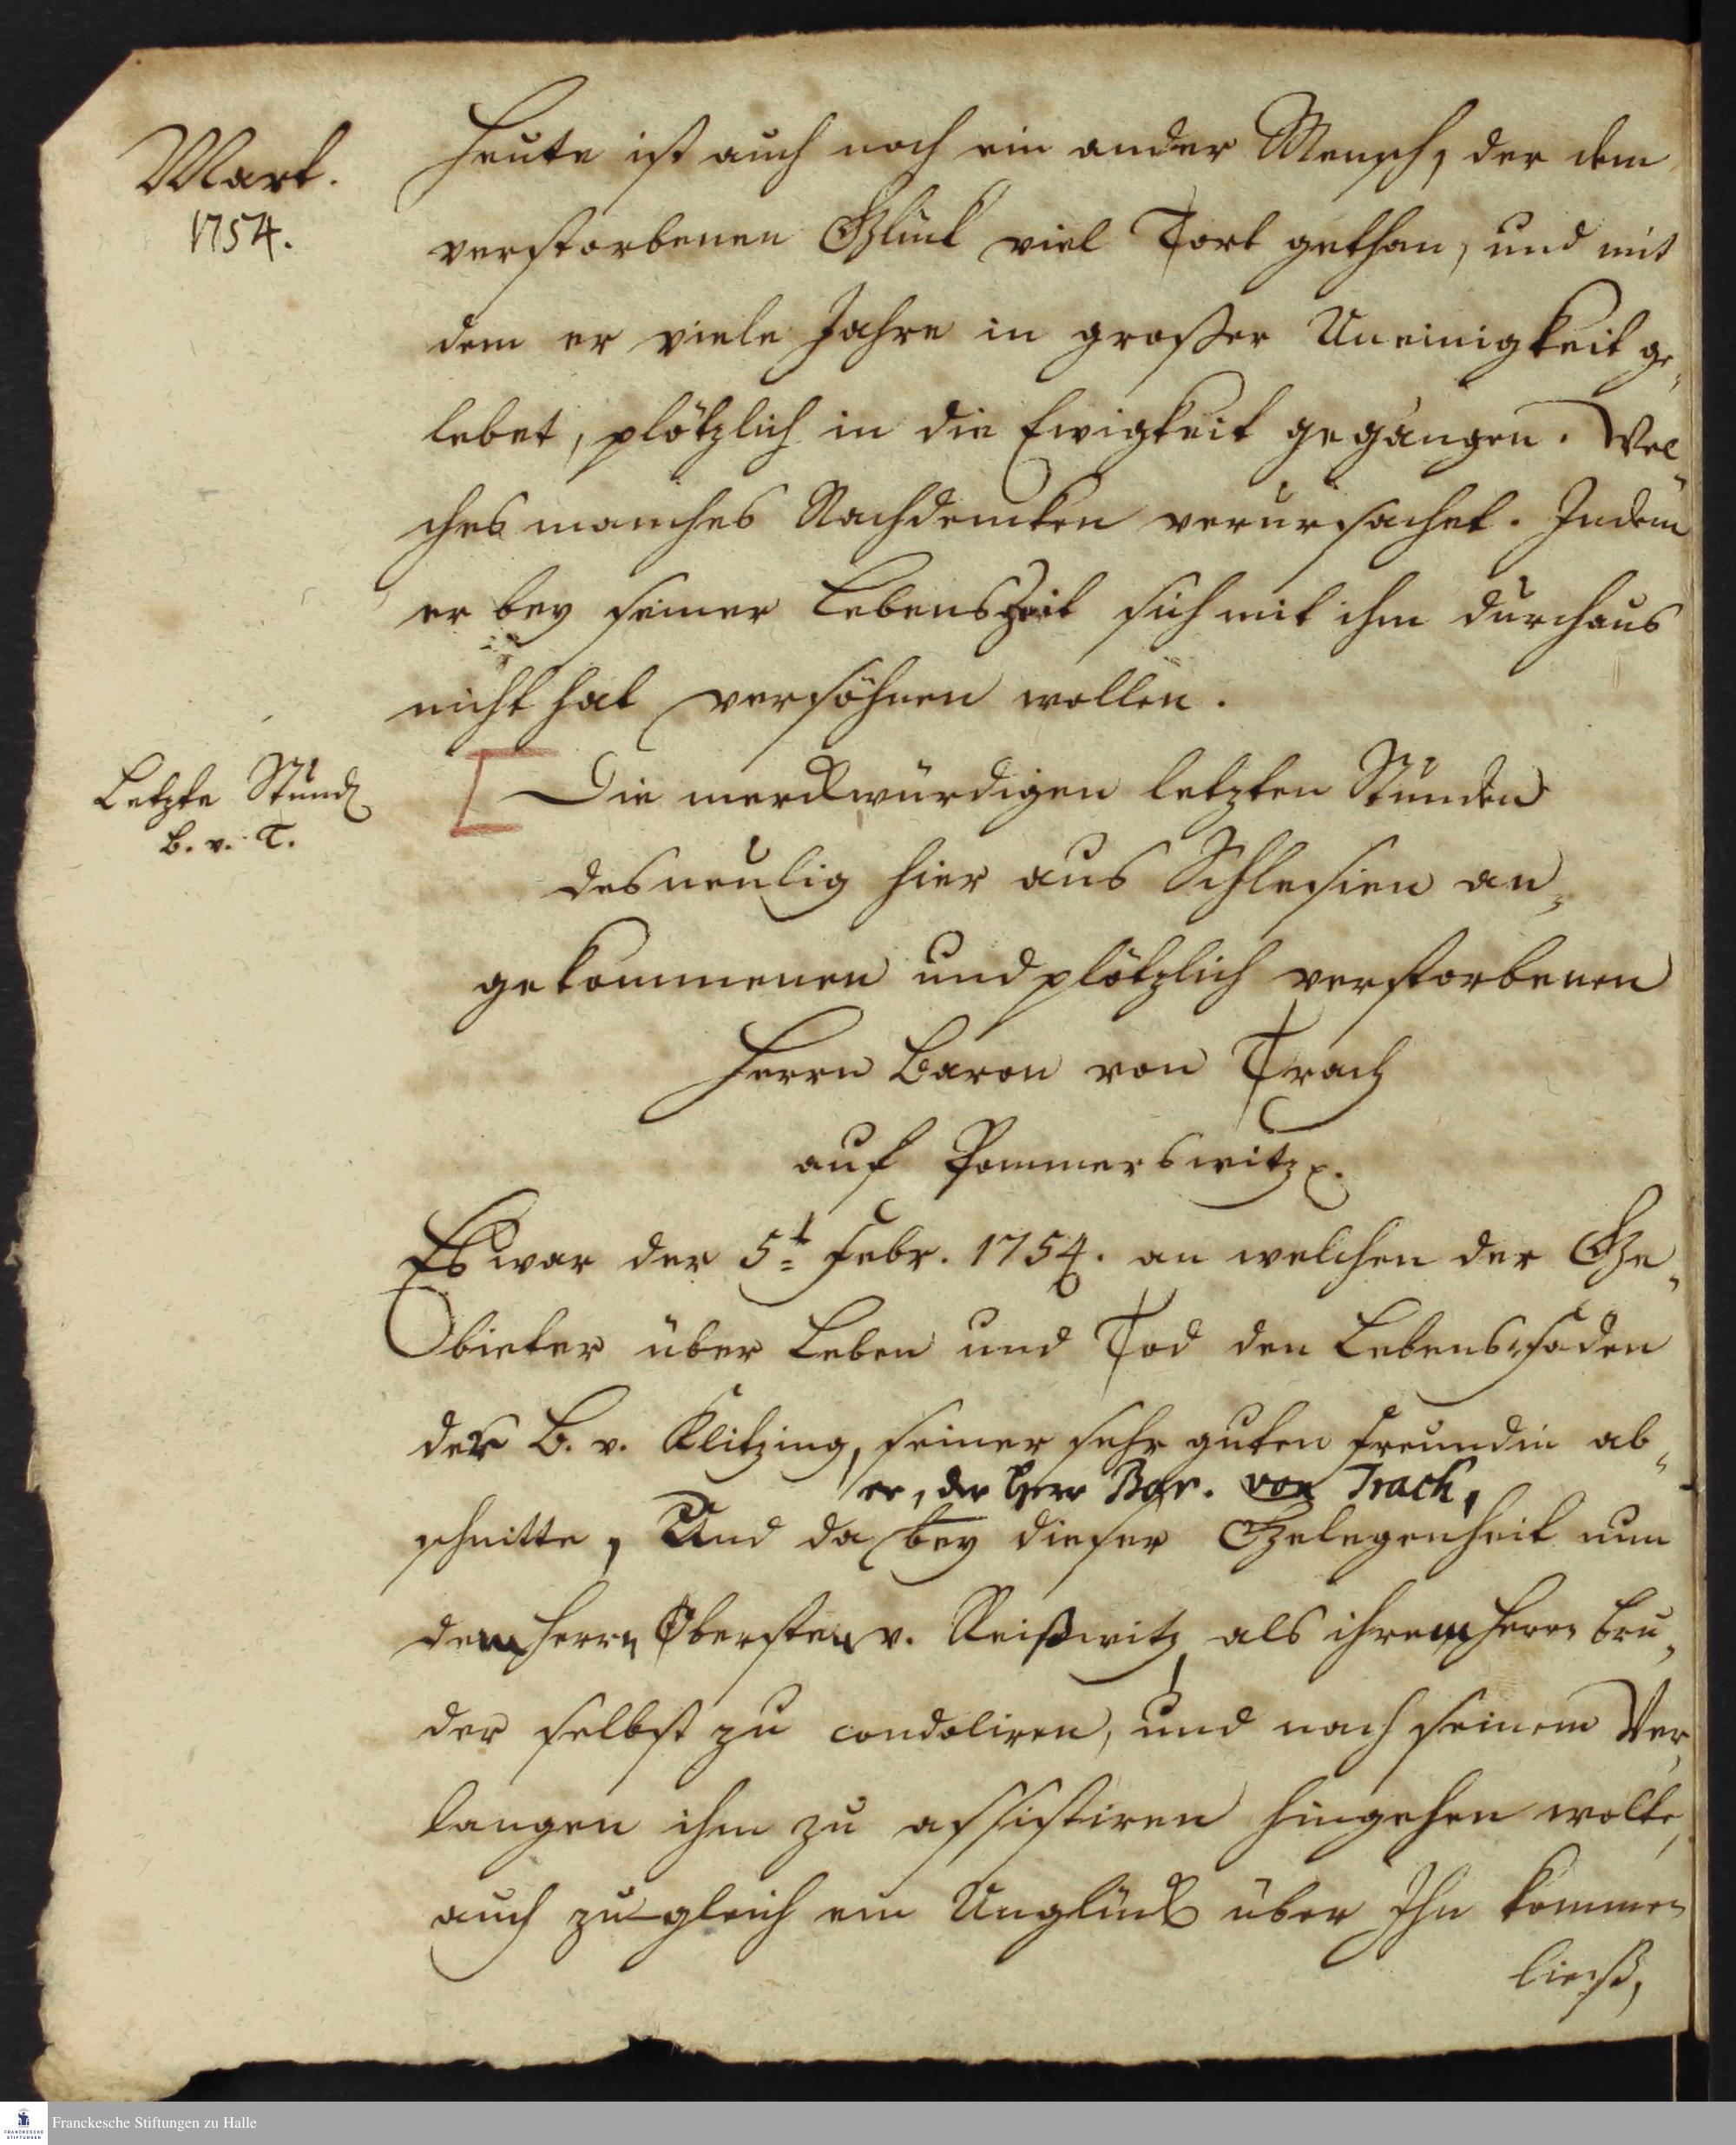 Mart.
1754.
Heute ist auch noch ein ander Mensch, der dem
verstorbenen Glück viel Tort gethan, und mit
dem er viele Jahre in großer Uneinigkeit ge„
lebet, plötzlich in die Ewigkeit gegangen. Wel„
ches manches Nachdencken verursachet. Indem
er bey seiner Lebenszeit sich mit ihm durchaus
nicht hat versöhnen wollen.
Letzte Stund
B. v. T.
Die merckwürdigen letzten Stunden
des neulig hier aus Schlesien an„
gekommenen und plötzlich verstorbenen
Herrn Baron von Trach
auf Pommerswitz
Es war der 5t Febr. 1754. an welchen der Ge„
bieter über Leben und Tod den Lebens-faden
der B. v. Klitzing, seiner sehr guten Freundin ab„
er, der Herr Bar. von Trach,
schnitte, Und da bey dieser Gelegenheit nun
dem Herrn Obersten v. Reißwitz als ihrem Herrn Bru„
der selbst zu condoliren, und nach seinem Ver„
langen ihm zu assistiren hingehen wolte,
auch zu gleich ein Unglück über Ihn kommen
ließ,
Franckesche Stiftungen zu Halle
FRANCKESCHE
STIFTUNGEN